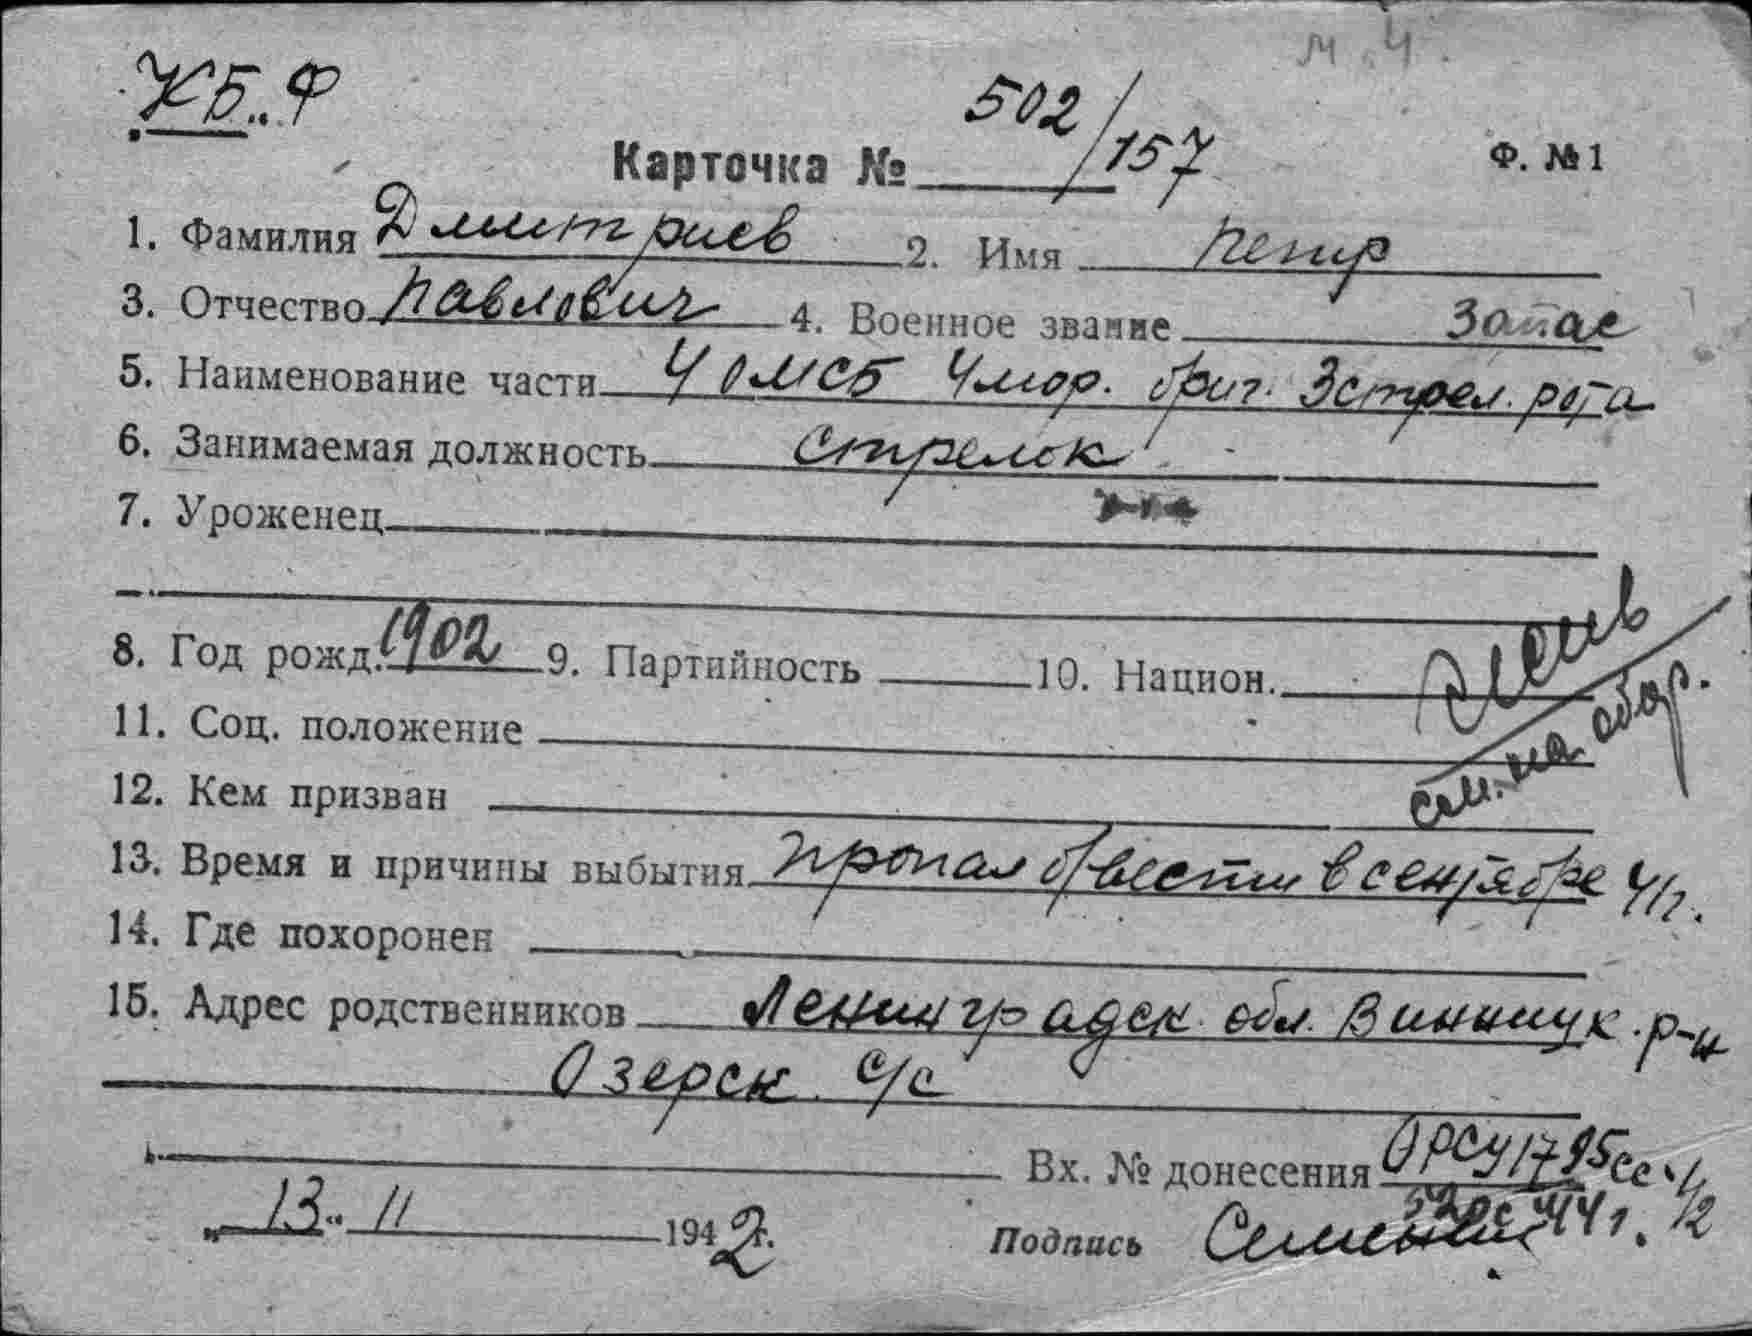 м.ч.
КБ.Ф
502/157
Карточка № Ф. № 1
1. Фамилия Дмитриев 2. Имя Петр
3. Отчество Павлович 4. Военное звание Запас
5. Наименование части 4 ОМСБ 4 мор. бриг. 3 стрел. рота
6. Занимаемая должность стрелок
7. Уроженец
8. Год рожд. 1902 9. Партийность 10. Национ.
11. Соц. положение
см. на обор.
12. Кем призван
13. Время и причины выбытия пропал б/вести в сентябре 41г.
14. Где похоронен
15. Адрес родственников Ленинградск. обл. Винницк. р-н
Озерск. с/с
Вх. № донесения ОРСУ 1795сс
„13“ 11 1942г. Подпись